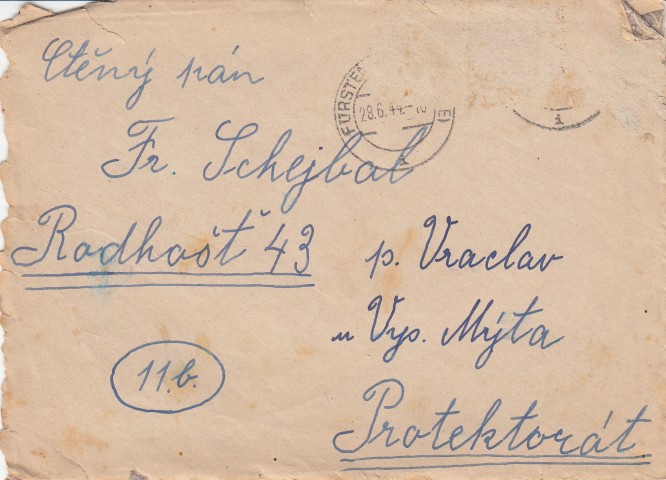 Ctěný pán
FÜRSTE
28.6.44
E)
i
Fr. Schejbal
Radhošť 43
p. Vraclav
u Vys. Mýta
11.b.
Protektorát